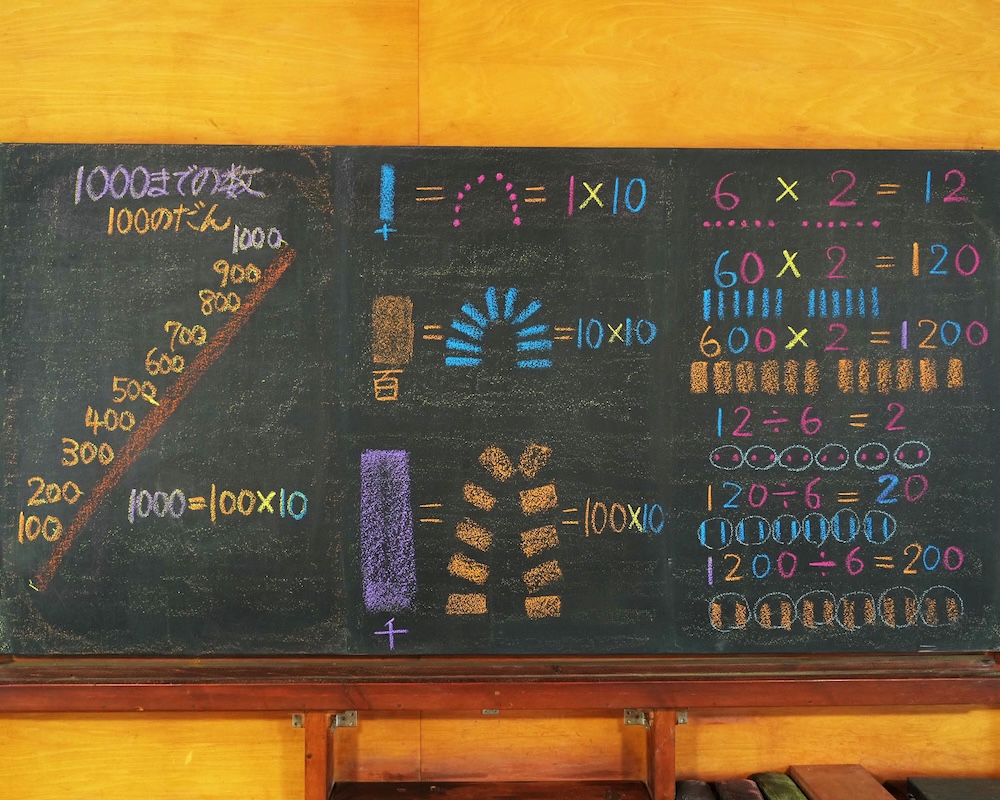 1000までの数
100のだん
1000
900
800
700
600
500
400
300
200
100
1000=100×10
十
= = 1×10
百
= =10×10
千
= =100×10
6 × 2 = 12
60 × 2 = 120
600 × 2 = 1200
12÷6 = 2
120÷6 = 20
1200÷6=200